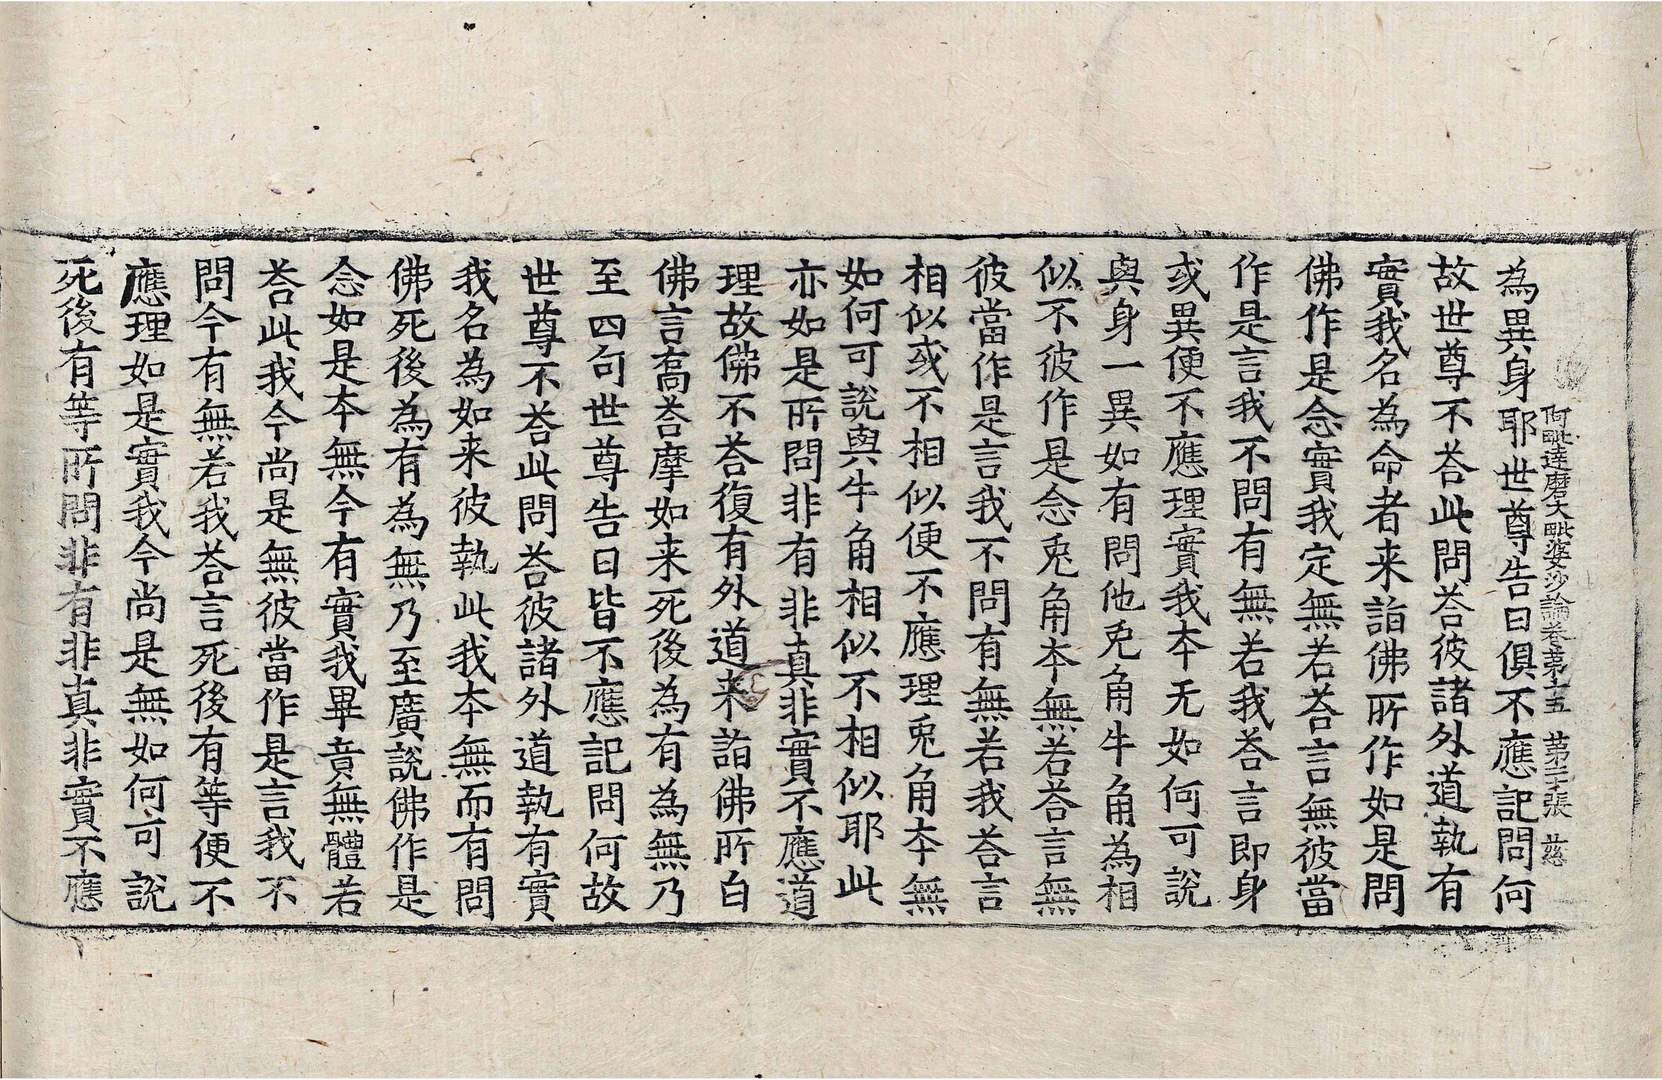 阿毗達磨大毗婆沙論卷第十五 第二十張 慈
為異身耶世尊告曰俱不應記問何
故世尊不荅此問荅彼諸外道執有
實我名為命者来詣佛所作如是問
佛作是念實我定無若荅言無彼當
作是言我不問有無若我荅言即身
或異便不應理實我本无如何可說
與身一異如有問他兎角牛角為相
似不彼作是念兎角本無若荅言無
彼當作是言我不問有無若我荅言
相似或不相似便不應理兎角本無
如何可說與牛角相似不相似耶此
亦如是所問非有非真非實不應道
理故佛不荅復有外道来詣佛所白
佛言喬荅摩如来死後為有為無乃
至四句世尊告曰皆不應記問何故
世尊不荅此問荅彼諸外道執有實
我名為如来彼執此我本無而有問
佛死後為有為無乃至廣說佛作是
念如是本無今有實我畢竟無體若
荅此我今尚是無彼當作是言我不
問今有無若我荅言死後有等便不
應理如是實我今尚是無如何可說
死後有等所問非有非真非實不應